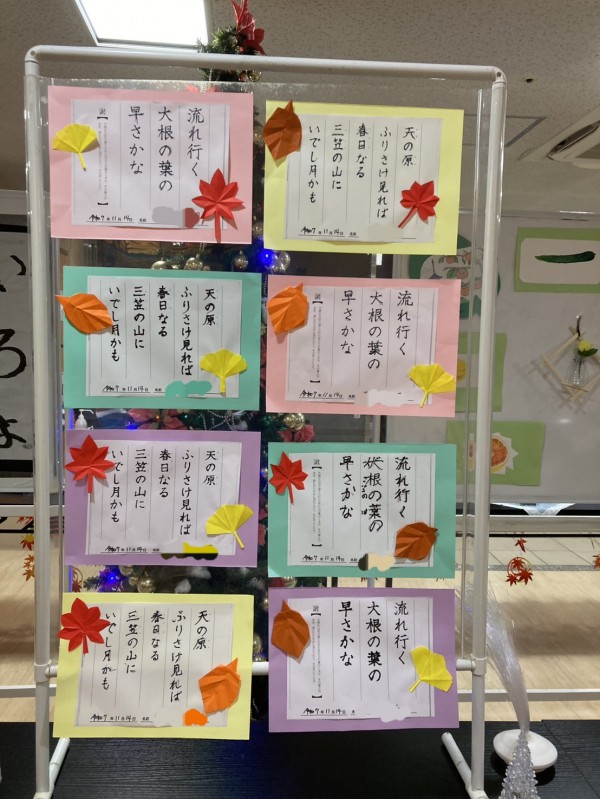 流れ行く
大根の葉の
早さかな
訳
令和7年11月14日 名前
天の原
ふりさけ見れば
春日なる
三笠の山に
いでし月かも
令和7年11月14日 名前
天の原
ふりさけ見れば
春日なる
三笠の山に
いでし月かも
令和7年11月14日 名前
流れ行く
大根の葉の
早さかな
訳
令和7年11月14日 名前
天の原
ふりさけ見れば
春日なる
三笠の山に
いでし月かも
令和7年11月14日
流れ行く
大根の葉の
早さかな
訳
令和7年11月14日
天の原
ふりさけ見れば
春日なる
三笠の山に
いでし月かも
令和7年11月14日 名前
流れ行く
大根の葉の
早さかな
訳
令和7年11月14日
いろ